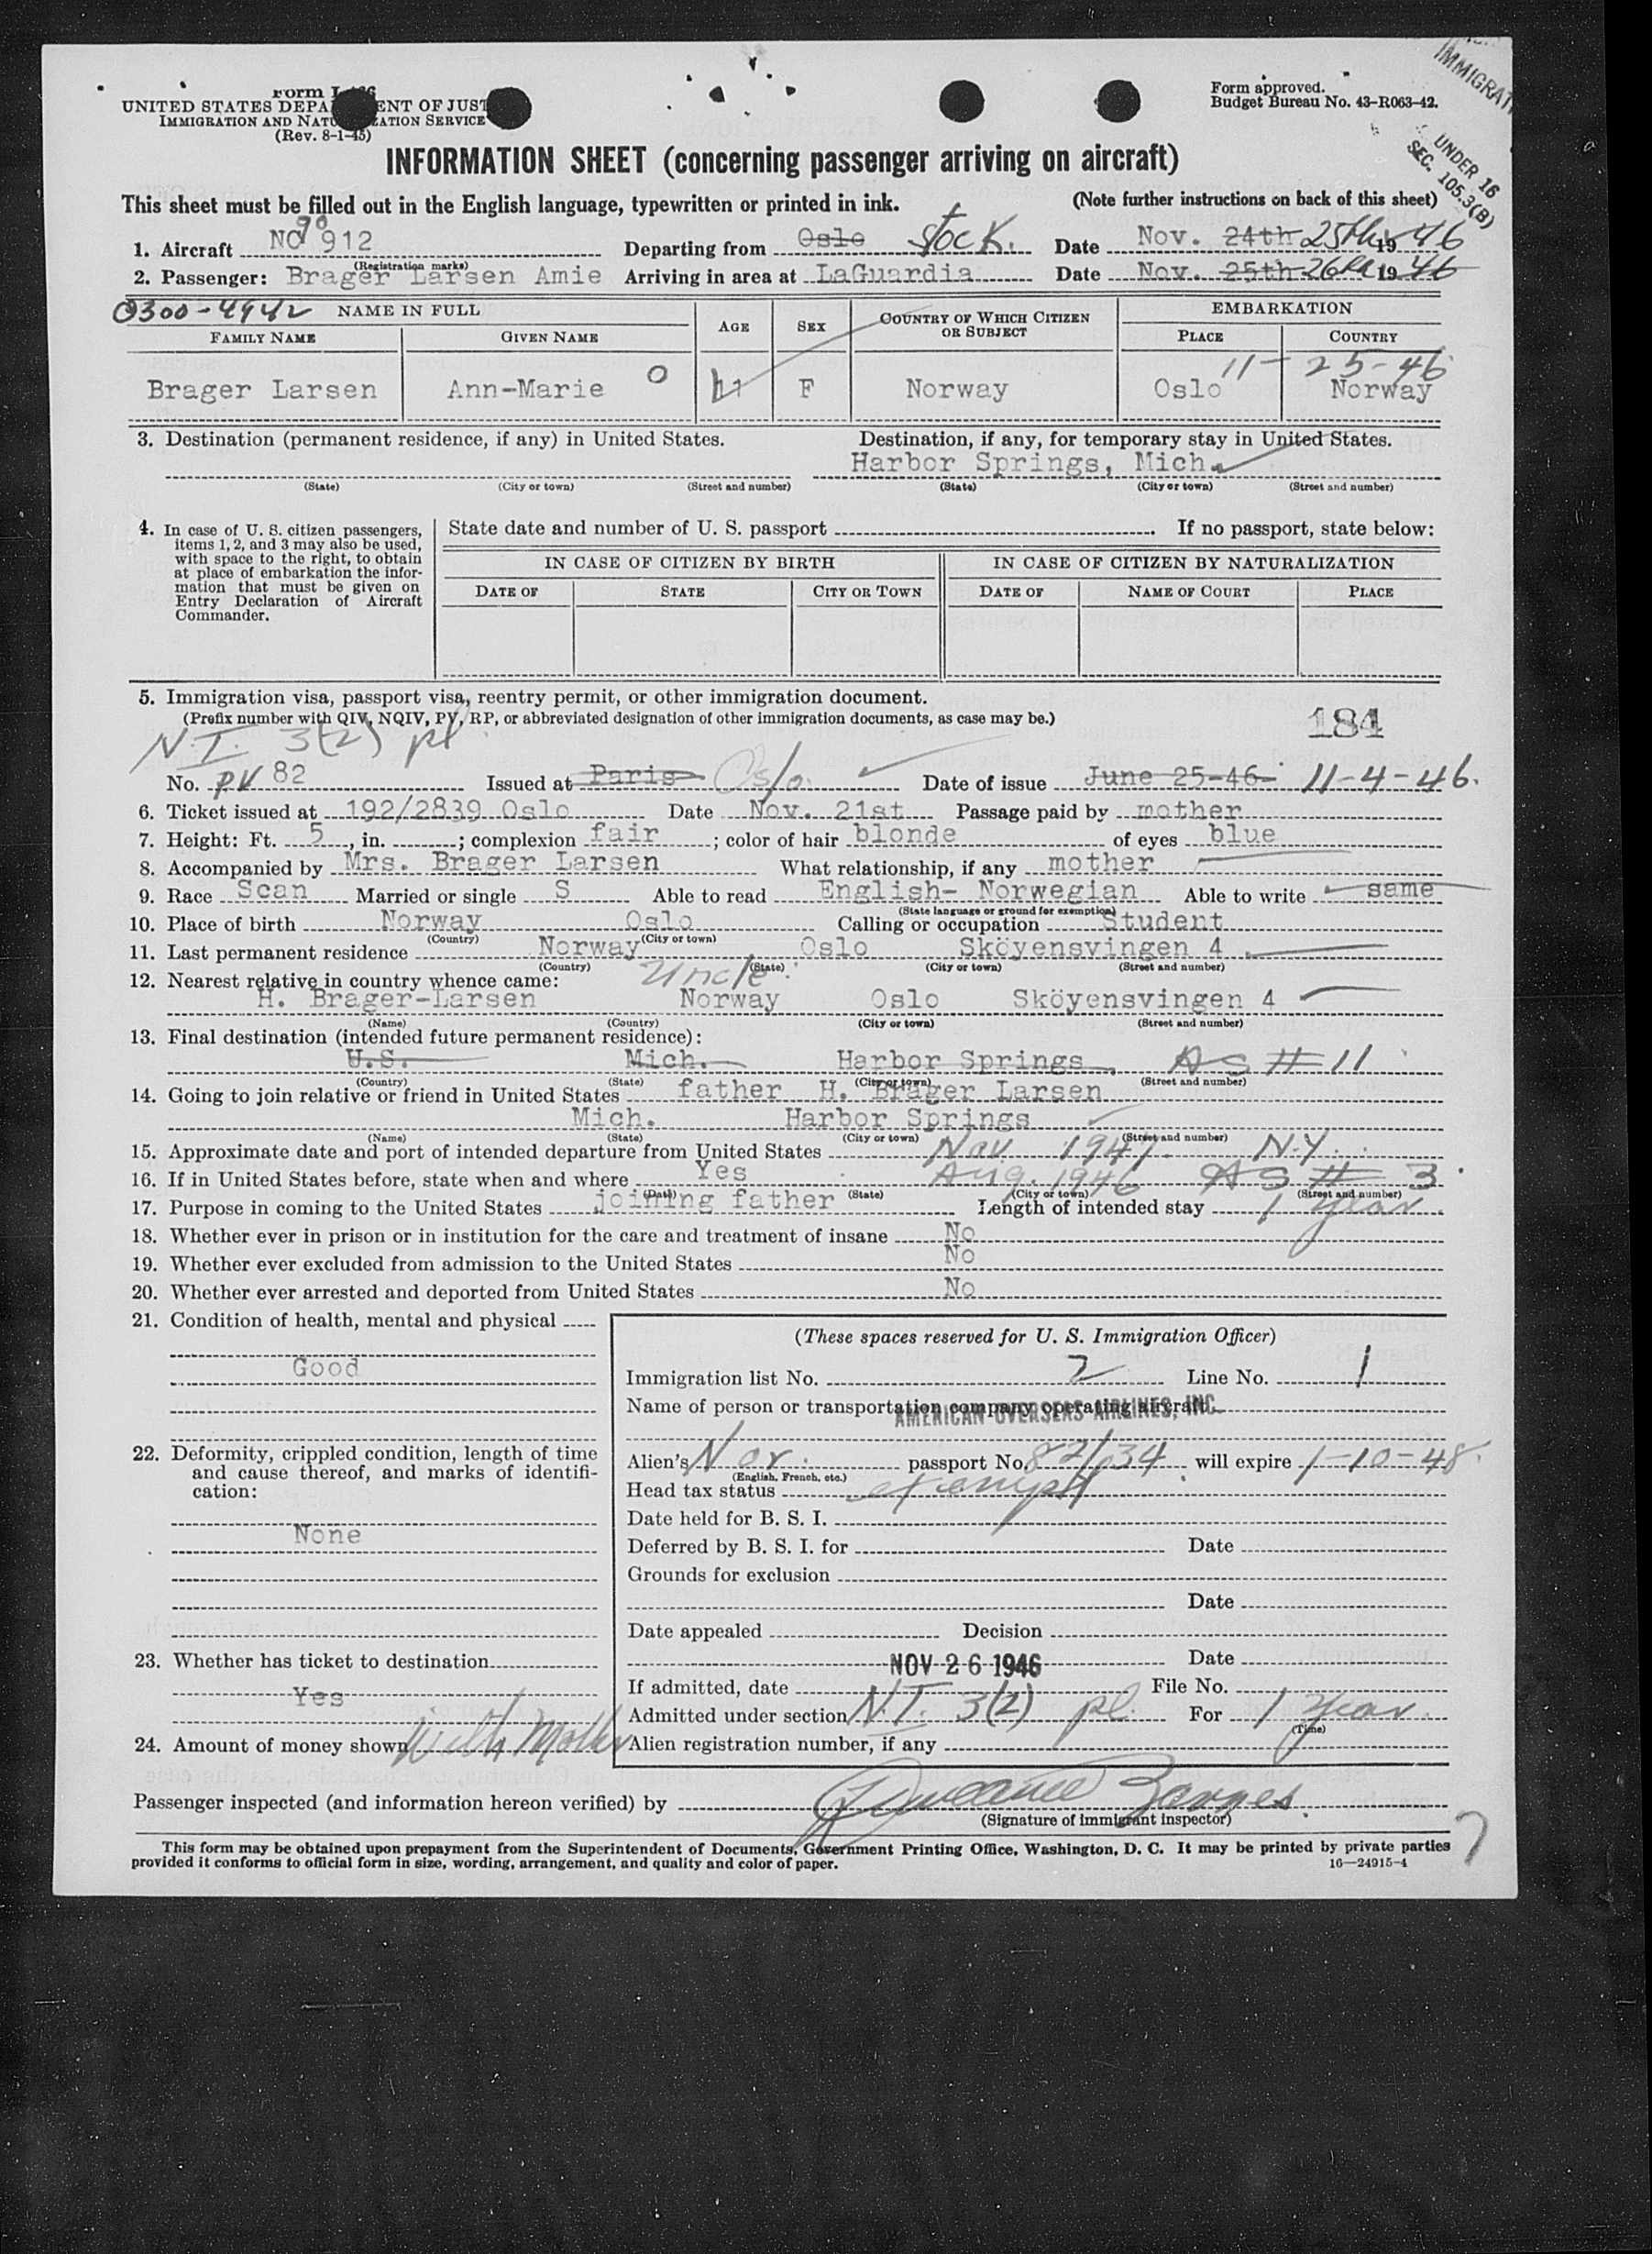 IMMIGRAT
UNDER 16
SEC. 105.3(B)
Form approved.
Budget Bureau No. 43-R063-42.
UNITED STATES DEPA ENT OF JUST
IMMIGRATION AND NATU ZATION SERVICE
(Rev. 8-1-45)
INFORMATION SHEET (concerning passenger arriving on aircraft)
This sheet must be filled out in the English language, typewritten or printed in ink. (Note further instructions on back of this sheet)
1. Aircraft NC 90 912 Departing from Oslo Stock. Date Nov. 24th 25th 1946
(Registration marks)
2. Passenger: Brager Larsen Amie Arriving in area at LaGuardia Date Nov. 25th 26th 1946
0300-4942 NAME IN FULL AGE SEX COUNTRY OF WHICH CITIZEN OR SUBJECT EMBARKATION
FAMILY NAME GIVEN NAME PLACE COUNTRY
11-25-46
Brager Larsen Ann-Marie O 11 F Norway Oslo Norway
3. Destination (permanent residence, if any) in United States. Destination, if any, for temporary stay in United States.
Harbor Springs, Mich.
(State) (City or town) (Street and number) (State) (City or town) (Street and number)
4. In case of U. S. citizen passengers, items 1, 2, and 3 may also be used, with space to the right, to obtain at place of embarkation the information that must be given on Entry Declaration of Aircraft Commander.
State date and number of U. S. passport . If no passport, state below:
IN CASE OF CITIZEN BY BIRTH IN CASE OF CITIZEN BY NATURALIZATION
DATE OF STATE CITY OR TOWN DATE OF NAME OF COURT PLACE
5. Immigration visa, passport visa, reentry permit, or other immigration document.
(Prefix number with QIV, NQIV, PV, RP, or abbreviated designation of other immigration documents, as case may be.) 184
N.I. 3(2) pl
No. PV 82 Issued at Paris Oslo Date of issue June 25-46 11-4-46.
6. Ticket issued at 192/2839 Oslo Date Nov. 21st Passage paid by mother
7. Height: Ft. 5, in. ; complexion fair ; color of hair blonde of eyes blue
8. Accompanied by Mrs. Brager Larsen What relationship, if any mother
9. Race Scan Married or single S Able to read English- Norwegian Able to write same
(State language or ground for exemption)
10. Place of birth Norway Oslo Calling or occupation Student
(Country) (City or town)
11. Last permanent residence Norway Oslo Sköyensvingen 4
(Country) (State) (City or town) (Street and number)
12. Nearest relative in country whence came: Uncle
H. Brager-Larsen Norway Oslo Sköyensvingen 4
(Name) (Country) (City or town) (Street and number)
13. Final destination (intended future permanent residence):
U.S. Mich. Harbor Springs AS # 11
(Country) (State) (City or town) (Street and number)
14. Going to join relative or friend in United States father H. Brager Larsen
Mich. Harbor Springs
(Name) (State) (City or town) (Street and number)
15. Approximate date and port of intended departure from United States Nov 1947. N.Y.
16. If in United States before, state when and where Yes Aug. 1946 AS # 3
(Date) (State) (City or town) (Street and number)
17. Purpose in coming to the United States joining father Length of intended stay 1 year.
18. Whether ever in prison or in institution for the care and treatment of insane No
19. Whether ever excluded from admission to the United States No
20. Whether ever arrested and deported from United States No
21. Condition of health, mental and physical
Good
22. Deformity, crippled condition, length of time and cause thereof, and marks of identification:
None
23. Whether has ticket to destination
Yes
24. Amount of money shown With Mother
(These spaces reserved for U. S. Immigration Officer)
Immigration list No. 2 Line No. 1
Name of person or transportation company operating aircraft
AMERICAN OVERSEAS AIRLINES, INC.
Alien's Nor. passport No. 82/34 will expire 1-10-48.
(English, French, etc.)
Head tax status exempt
Date held for B. S. I.
Deferred by B. S. I. for Date
Grounds for exclusion
Date
Date appealed Decision
NOV 26 1946 Date
If admitted, date File No.
Admitted under section N.I. 3(2) pl. For 1 Year.
(Time)
Alien registration number, if any
Passenger inspected (and information hereon verified) by
(Signature of Immigrant Inspector)
This form may be obtained upon prepayment from the Superintendent of Documents, Government Printing Office, Washington, D. C. It may be printed by private parties
provided it conforms to official form in size, wording, arrangement, and quality and color of paper. 16—24915-4
7